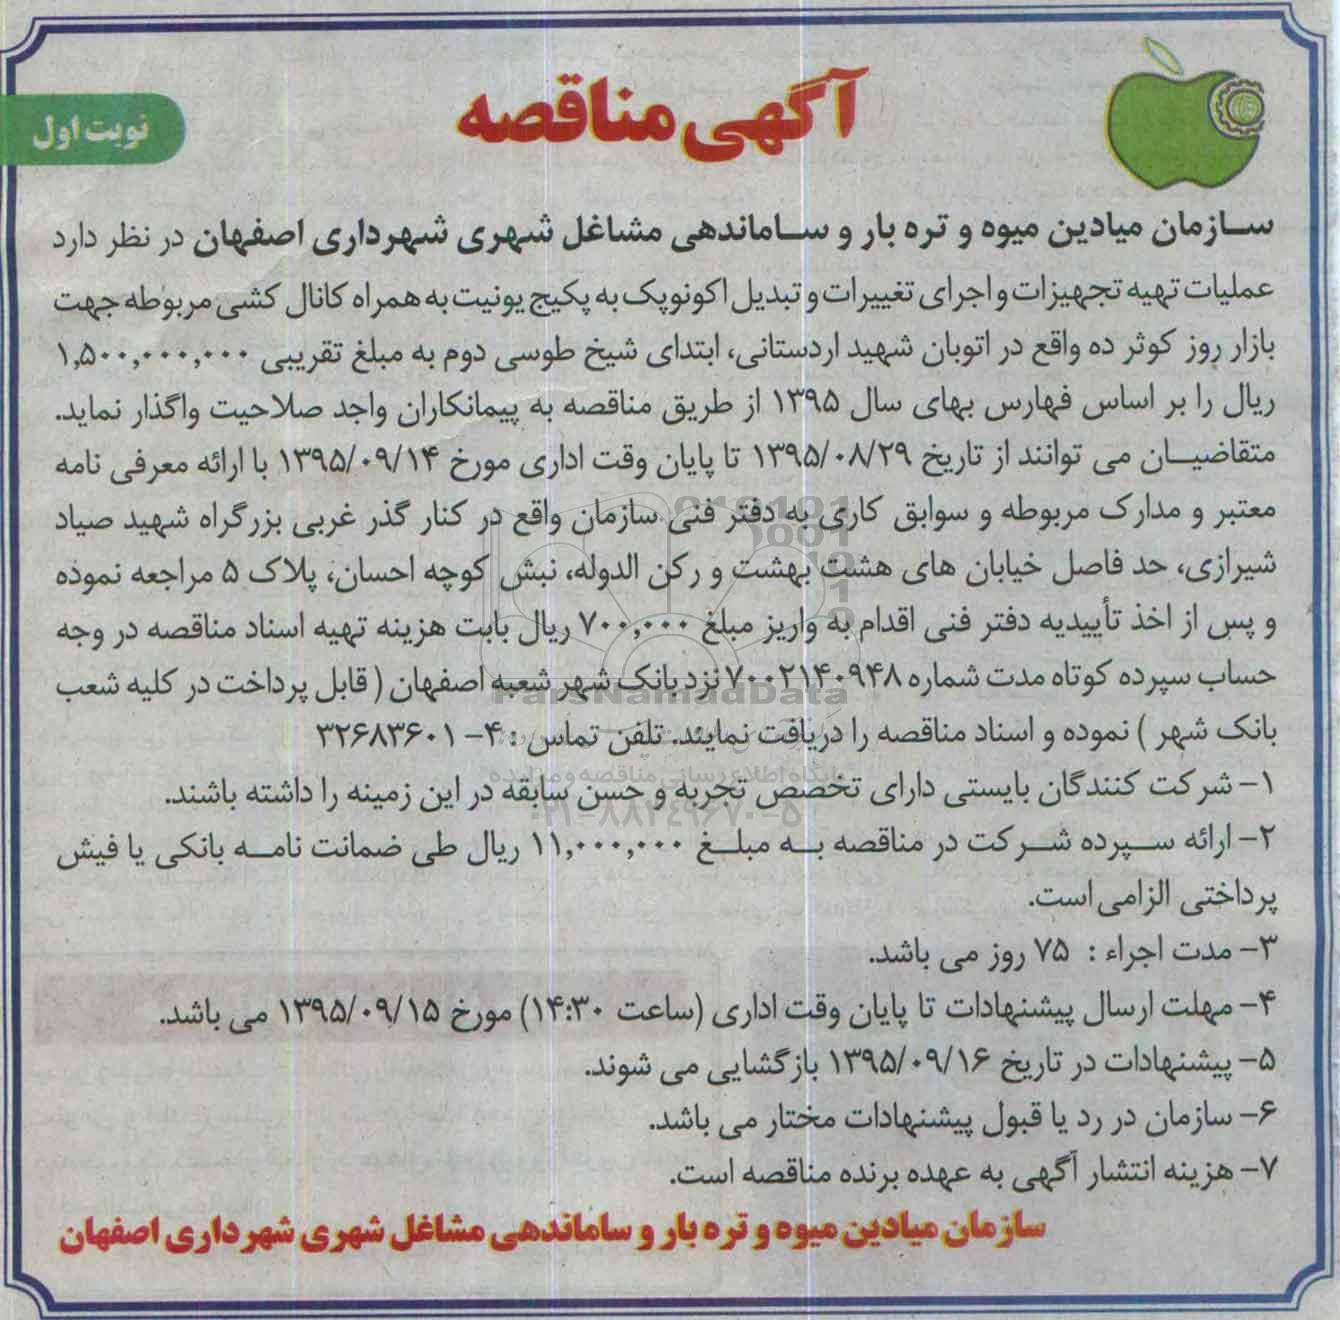 آگهی مناقصه
نوبت اول
سازمان میادین میوه و تره بار و ساماندهی مشاغل شهری شهرداری اصفهان در نظر دارد
عملیات تهیه تجهیزات و اجرای تغییرات و تبدیل اکونوپک به پکیج یونیت به همراه کانال کشی مربوطه جهت
بازار روز کوثر ده واقع در اتوبان شهید اردستانی، ابتدای شیخ طوسی دوم به مبلغ تقریبی ۱,۵۰۰,۰۰۰,۰۰۰
ریال را بر اساس فهارس بهای سال ۱۳۹۵ از طریق مناقصه به پیمانکاران واجد صلاحیت واگذار نماید.
متقاضیان می توانند از تاریخ ۱۳۹۵/۰۸/۲۹ تا پایان وقت اداری مورخ ۱۳۹۵/۰۹/۱۴ با ارائه معرفی نامه
معتبر و مدارک مربوطه و سوابق کاری به دفتر فنی سازمان واقع در کنار گذر غربی بزرگراه شهید صیاد
شیرازی، حد فاصل خیابان های هشت بهشت و رکن الدوله، نبش کوچه احسان، پلاک ۵ مراجعه نموده
و پس از اخذ تأییدیه دفتر فنی اقدام به واریز مبلغ ۷۰۰,۰۰۰ ریال بابت هزینه تهیه اسناد مناقصه در وجه
حساب سپرده کوتاه مدت شماره ۷۰۰۲۱۴۰۹۴۸ نزد بانک شهر شعبه اصفهان ( قابل پرداخت در کلیه شعب
بانک شهر ) نموده و اسناد مناقصه را دریافت نمایند. تلفن تماس : ۴- ۳۲۶۸۳۶۰۱
۱- شرکت کنندگان بایستی دارای تخصص تجربه و حسن سابقه در این زمینه را داشته باشند.
۲- ارائه سپرده شرکت در مناقصه به مبلغ ۱۱,۰۰۰,۰۰۰ ریال طی ضمانت نامه بانکی یا فیش
پرداختی الزامی است.
۳- مدت اجراء : ۷۵ روز می باشد.
۴- مهلت ارسال پیشنهادات تا پایان وقت اداری (ساعت ۱۴:۳۰) مورخ ۱۳۹۵/۰۹/۱۵ می باشد.
۵- پیشنهادات در تاریخ ۱۳۹۵/۰۹/۱۶ بازگشایی می شوند.
۶- سازمان در رد یا قبول پیشنهادات مختار می باشد.
۷- هزینه انتشار آگهی به عهده برنده مناقصه است.
سازمان میادین میوه و تره بار و ساماندهی مشاغل شهری شهرداری اصفهان
ParsNamadData
پایگاه اطلاع رسانی مناقصه و مزایده
۰۲۱-۸۸۳۴۹۶۷۰-۵